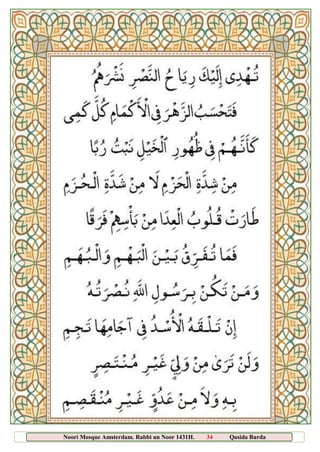 تُهْدِىْ إِلَيْكَ رِيَاحُ النَّصْرِ نَشْرَهُمُ
فَتَحْسَبُ الزَّهْرَ فِى الْأَكْمَامِ كُلَّ كَمِى
كَأَنَّهُمْ فِى ظُهُورِ الْخَيْلِ نَبْتُ رُبًا
مِنْ شِدَّةِ الْحَزْمِ لَا مِنْ شَدَّةِ الْحُزُمِ
طَارَتْ قُلُوبُ الْعِدَا مِنْ بَأْسِهِمْ فَرَقًا
فَمَا تُفَرِّقُ بَيْنَ الْبَهْمِ وَالْبُهَمِ
وَمَنْ تَكُنْ بِرَسُولِ اللهِ نُصْرَتُهُ
إِنْ تَلْقَهُ الْأُسْدُ فِى آجَامِهَا تَجِمِ
وَلَنْ تَرَىٰ مِنْ وَلِيٍّ غَيْرَ مُنْتَصِرٍ
بِهِ وَلَا مِنْ عَدُوٍّ غَيْرَ مُنْقَصِمِ
Noori Mosque Amsterdam. Rabbi un Noor 1431H. 34 Qasida Burda